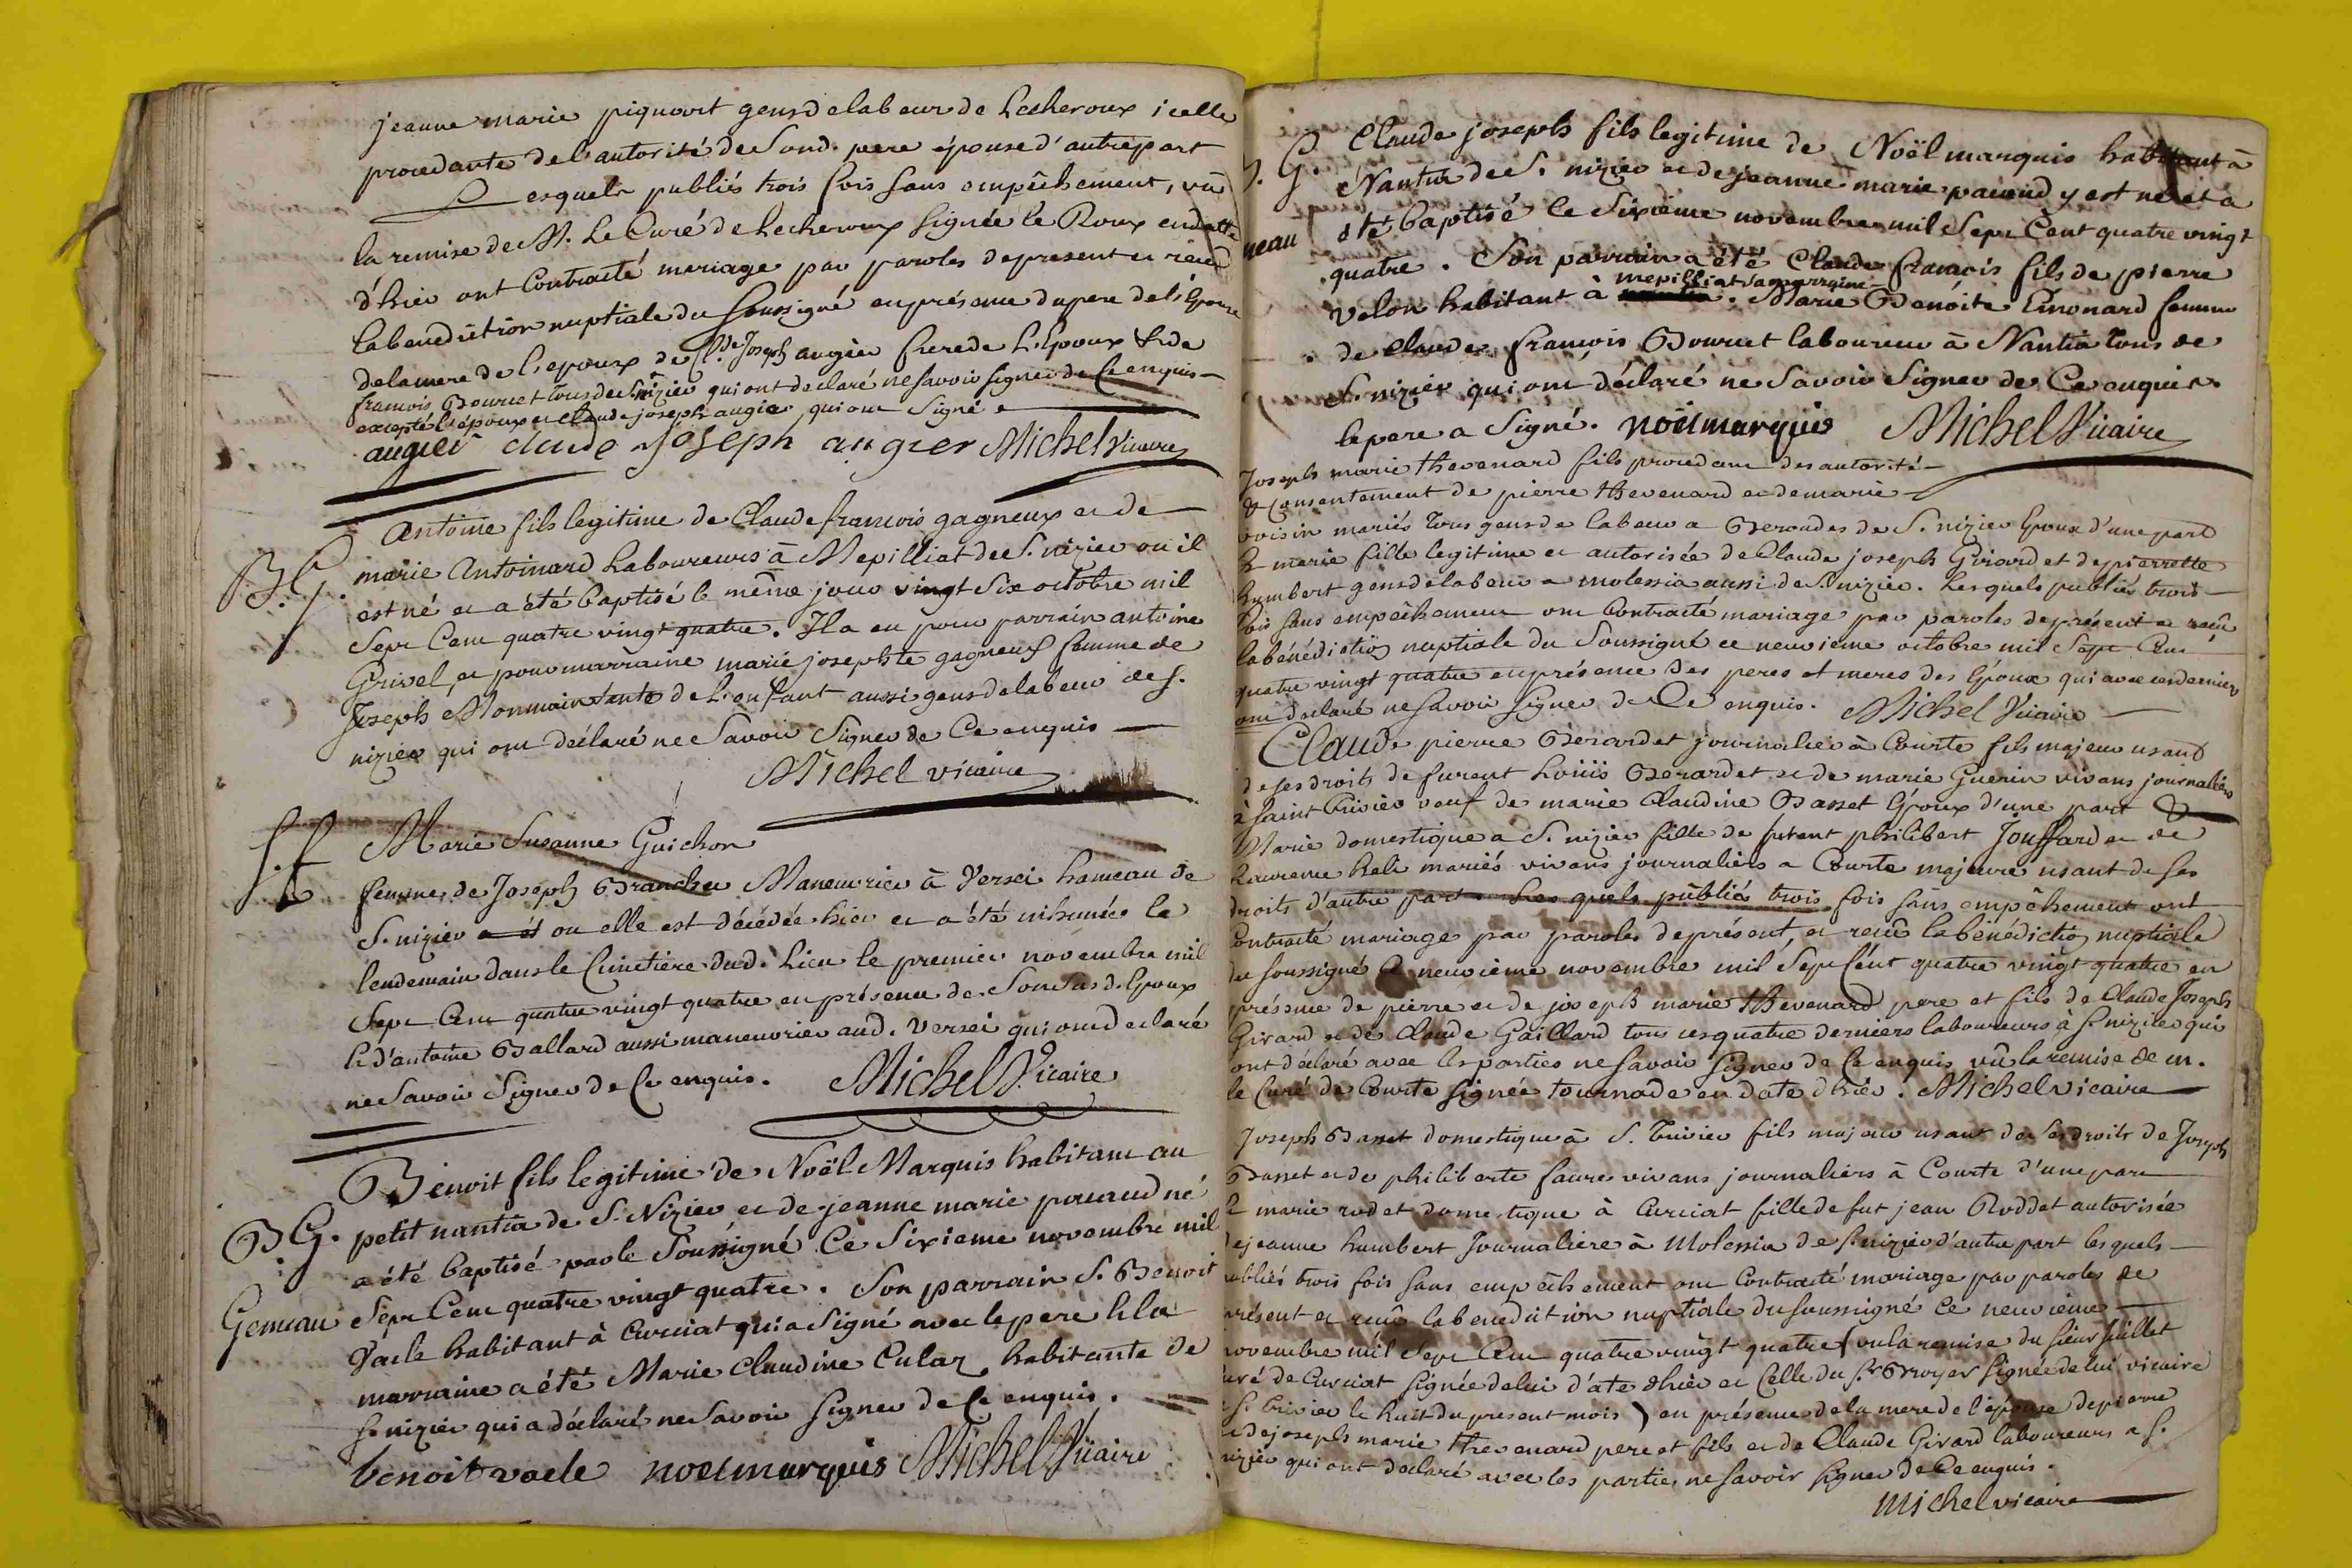 jeanne marie piquort gens de labeur de Lecheroux icelle
procedante de l'autorité de Sond. pere épouse d'autre part
Lesquels publiés trois fois sans empêchement, vû
la remise de M. Le Curé de Lecheroux signée le Roux en datte
d'hier ont Contracté mariage par paroles de present et reçu
la benediction nuptiale du soussigné en présence du pere de l'épouse
de la mere de l'epoux de Cl.de Joseph augier frere de L'Epoux & de
francois Bourcet tous de S. nizier qui ont declaré ne savoir signer de Ce enquis
excepté l'époux et claude joseph augier qui ont Signé
augier claude Joseph augier Michel Vicaire
antoine fils legitime de Claude francois gagneux et de
B. G. marie Antoinard Laboureurs à Mepilliat de S. nizier ou il
est né et a été baptisé le même jour vingt Six octobre mil
Sept Cent quatre vingt quatre. Il a eu pour parrain antoine
Grivel, et pour marraine marie josephte gagneux femme de
Joseph Monmain tante de L'enfant aussi gens de labeur de S.
nizier qui ont déclaré ne Savoir Signer de Ce enquis
Michel vicaire
S. f. Marie Susanne Guichon
femme de Joseph Branche Maneuvrier à Versei hameau de
S. nizier ou elle est décédée hier et a été inhumée le
lendemain dans le Cimetière dud. Lieu le premier novembre mil
Sept Cent quatre vingt quatre en présence de Son Susd. Epoux
& d'antoine Ballard aussi maneuvrier aud. Versei qui ont declaré
ne Savoir Signer de Ce enquis. Michel Vicaire
Benoit fils legitime de Noël Marquis habitant au
B. G. petit nantia de S. Nizier et de jeanne marie pauaud né
a été baptisé par le Soussigné Ce Sixieme novembre mil
Gemeau Sept Cent quatre vingt quatre. Son parrain S. Benoit
vacle habitant à Curciat qui a Signé avec le pere & la
marraine a été Marie Claudine Cular habitante de
S. nizier qui a déclaré ne Savoir Signer de Ce enquis.
benoit vacle noel marquis Michel Vicaire
Claude joseph fils legitime de Noël marquis habitant à
G. Nantia de S. nizier et de jeanne marie pauaud y est né et a
neau été baptisé le Sixième novembre mil Sept Cent quatre vingt
quatre. Son parrain a été Claude francois fils de pierre
velon habitant à mepilliat Sa marraine Marie Benoite Emonard femme
de claude francois Bourcet laboureur à Nantia tous de
S. nizier qui ont déclaré ne Savoir Signer de Ce enquis.
le pere a Signé. noel marquis Michel Vicaire
Joseph marie thevenard fils procedant des autorité
& Consentement de pierre thevenard et de marie
voisin mariés tous gens de labeur a Beroudes de S. nizier Epoux d'une part
& marie fille legitime et autorisée de Claude joseph Girard et de pierrette
humbert gens de labeur a molessia aussi de S. nizier. Lesquels publiés trois
fois sans empêchement ont Contracté mariage par paroles de présent et reçû
la bénédiction nuptiale du Soussigné ce neuvieme octobre mil Sept Cent
quatre vingt quatre en présence des peres et meres des époux qui avec ces derniers
ont declaré ne savoir signer de Ce enquis. Michel Vicaire
Claude pierre Berardet journalier à Courte fils majeur usant
de ses droits de furent Loüis Berardet et de marie Guerin vivans journaliers
à Saint Trivier veuf de marie Claudine Basset époux d'une part &
Marie domestique a S. nizier fille de furent philibert Jouffard et de
Laurence hali mariés vivans journaliers a Courte majeure usant de ses
droits d'autre part. Lesquels publiés trois fois sans empêchement ont
Contracté mariage par paroles de présent, et reçû la bénédiction nuptiale
du soussigné Ce neuvieme novembre mil Sept Cent quatre vingt quatre en
présence de pierre et de joseph marie thevenard pere et fils de Claude Joseph
Girard et de Claude Gaillard tous ces quatre derniers laboureurs à S. nizier qui
ont déclaré avec les parties ne savoir signer de Ce enquis vû la remise de m.
le Curé de Courte signée tournade en date d'hier. Michel vicaire
Joseph Basset domestique à S. Trivier fils majeur usant de ses droits de Joseph
Basset et de philiberte faure vivans journaliers à Courte d'une part
& marie rodet domestique à Curciat fille de fut jean Roddet autorisée
de jeanne humbert Journaliere à Molessia de S. nizier d'autre part lesquels
publiés trois fois sans empêchement ont Contracté mariage par paroles de
présent et reçû la benediction nuptiale du soussigné Ce neuvieme
novembre mil Sept Cent quatre vingt quatre (vu la remise du sieur juillet
curé de Curciat signée de lui d'ate d'hier et Celle du Sr. Broyer signée de lui vicaire
S. Trivier le huit du present mois) en présence de la mere de l'épouse de pierre
et de joseph marie thevenard pere et fils et de Claude Girard laboureurs a S.
nizier qui ont declaré avec les parties ne savoir signer de Ce enquis.
Michel vicaire